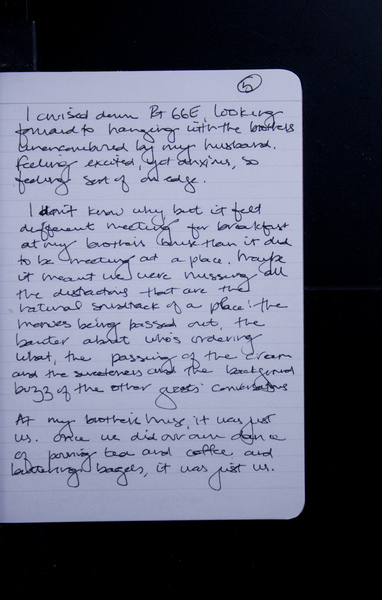 5
I cruised down Rt 66E, looking
forward to hanging with the brothers
unencumbered by my husband.
Feeling excited, yet anxious, so
feeling sort of on edge.
I don't know why but it felt
different meeting for breakfast
at my brother's house than it did
to be meeting at a place. Maybe
it meant we were missing all
the distractions that are the
natural soundtrack of a place: the
menus being passed out, the
banter about who's ordering
what, the passing of the cream
and the sweeteners and the background
buzz of the other guests' conversations
At my brother's house, it was just
us. Once we did our own dance
of pouring tea and coffee and
buttering bagels, it was just us.